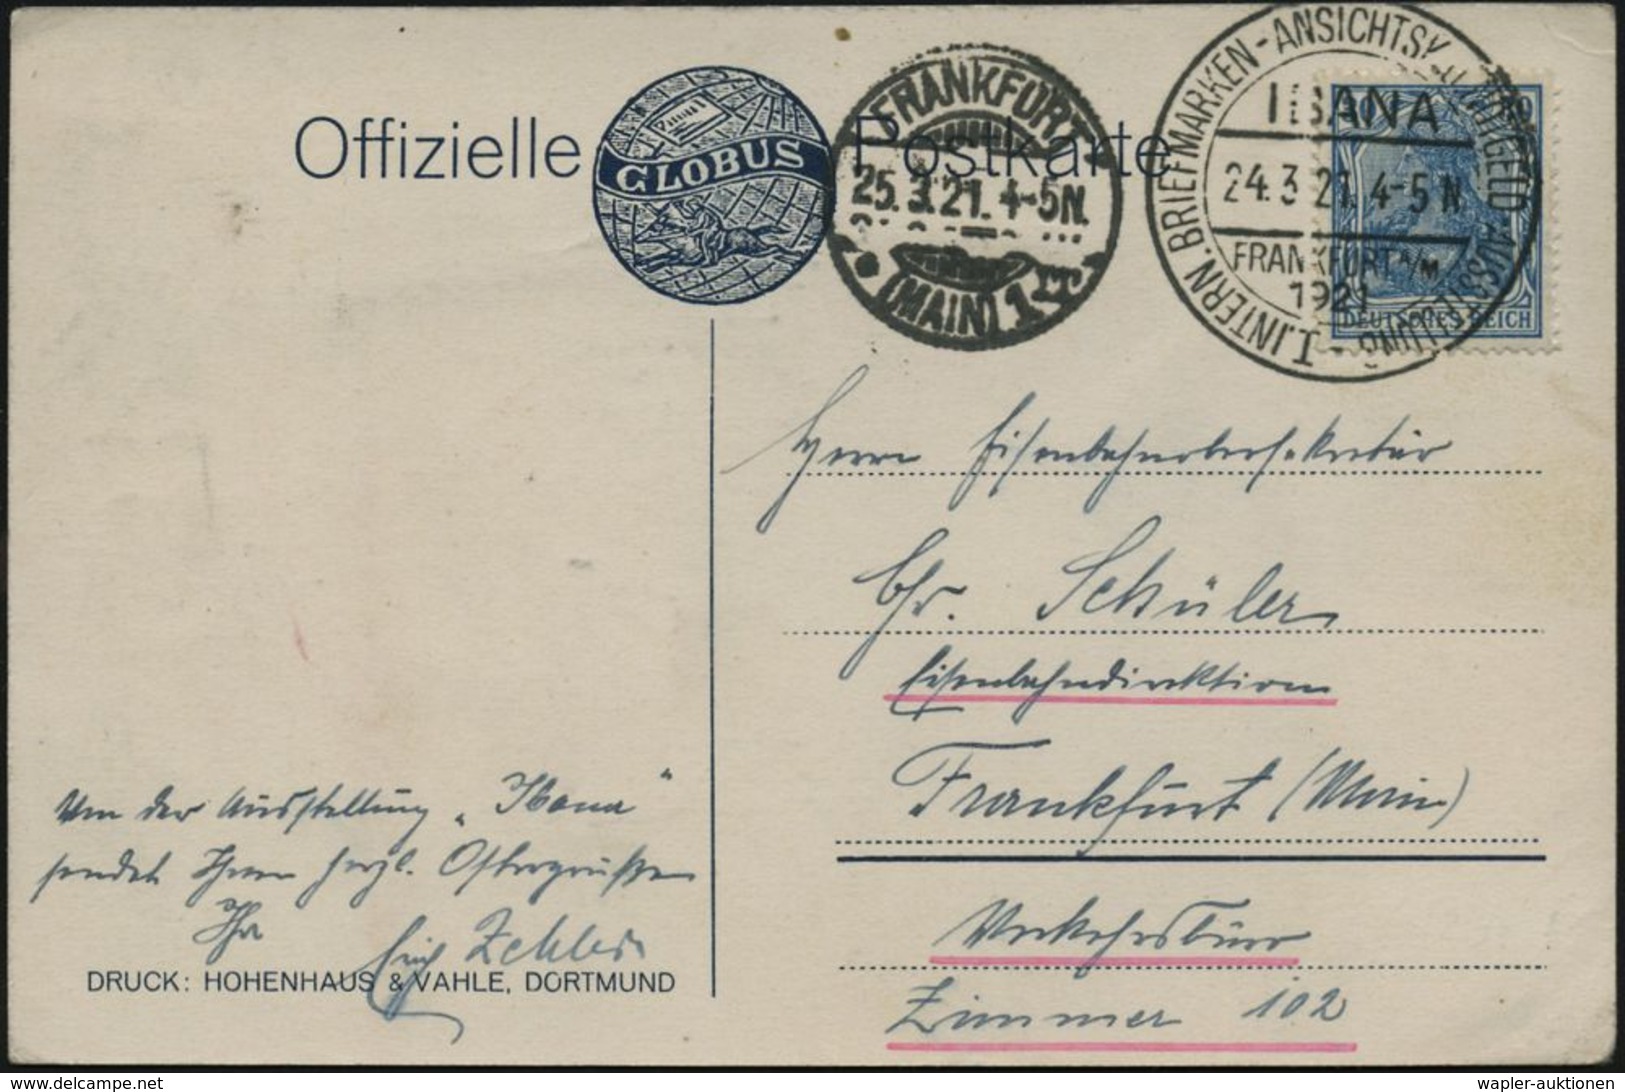 Offizielle Postkarte
GLOBUS
FRANKFURT
25.3.21. 4-5N.
(MAIN) 1
I. INTERN. BRIEFMARKEN-ANSICHTSK. NOTGELD AUSSTELLUNG -
IBANA
24.3 21. 4-5 N
FRANKFURT A/M.
1921
DEUTSCHES REICH
Herrn Eisenbahnobersekretär
Chr. Schüler
Eisenbahndirektion
Frankfurt (Main)
Verkehrsbüro
Zimmer 102
Von der Ausstellung „Ibana"
sendet Ihnen herzl. Ostergrüße
Ihr
Erich
DRUCK: HOHENHAUS & VAHLE, DORTMUND
wapler-auktionen